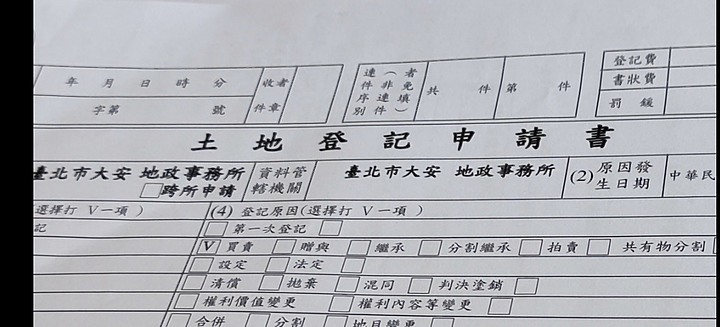 年 月 日 時 分 收者
字第 號 件章
連件序別(非連者免填) 共 件 第 件
登記費
書狀費
罰鍰
土地登記申請書
臺北市大安 地政事務所
□跨所申請
資料管轄機關
臺北市大安 地政事務所
(2) 原因發生日期
中華民
選擇打 V一項 )
(4) 登記原因(選擇打 V 一項 )
記
□ 第一次登記 □
V 買賣 □ 贈與 □ 繼承 □ 分割繼承 □ 拍賣 □ 共有物分割
□ 設定 □ 法定 □
□ 清償 □ 拋棄 □ 混同 □ 判決塗銷 □
□ 權利價值變更 □ 權利內容等變更 □
□ 合併 □ 分割 □ 地目變更 □